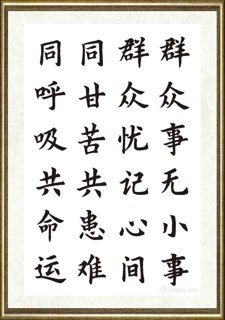 群众事无小事
群众忧记心间
同甘苦共患难
同呼吸共命运